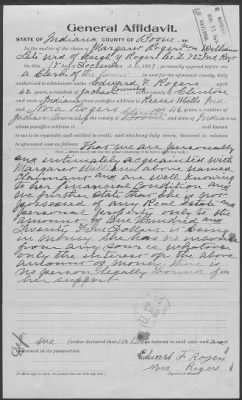 General Affidavit.
STATE OF Indiana COUNTY OF Boone, ss:
In the matter of the claim of Margaret Rogers now Williams
Late wid of Joseph Rogers Co. 72 Ind Regt
personally appeared before me
a Clerk of the Court in and for the aforesaid county, duly
authorized to administer oaths Edward F. Rogers aged
42 years, a resident of Jackson Township in the county of Clinton
and State of Indiana whose postoffice address is Reece Mills Ind
and Nora Rogers aged 26 years, a resident of
Jackson Township in the county of and State of Indiana
whose postoffice address is well known
to me to be reputable and entitled to credit, and who being duly sworn, declared in relation
to aforesaid case as follows:
That we are personally
and intimately acquainted with
Margaret Williams above named
Claimant and are well knowing
to her financial condition and
we further state that she is not
possessed of any Real Estate and
personal property only to the
amount of One Hundred and
Twenty Five Dollars it being
in money she has no income
from any source whatever
only the interest of the above
amount of money there is
no person legally bound for
her support
We further declared that we have no interest in said case and are not
concerned in its prosecution.
Edward F. Rogers
Nora Rogers